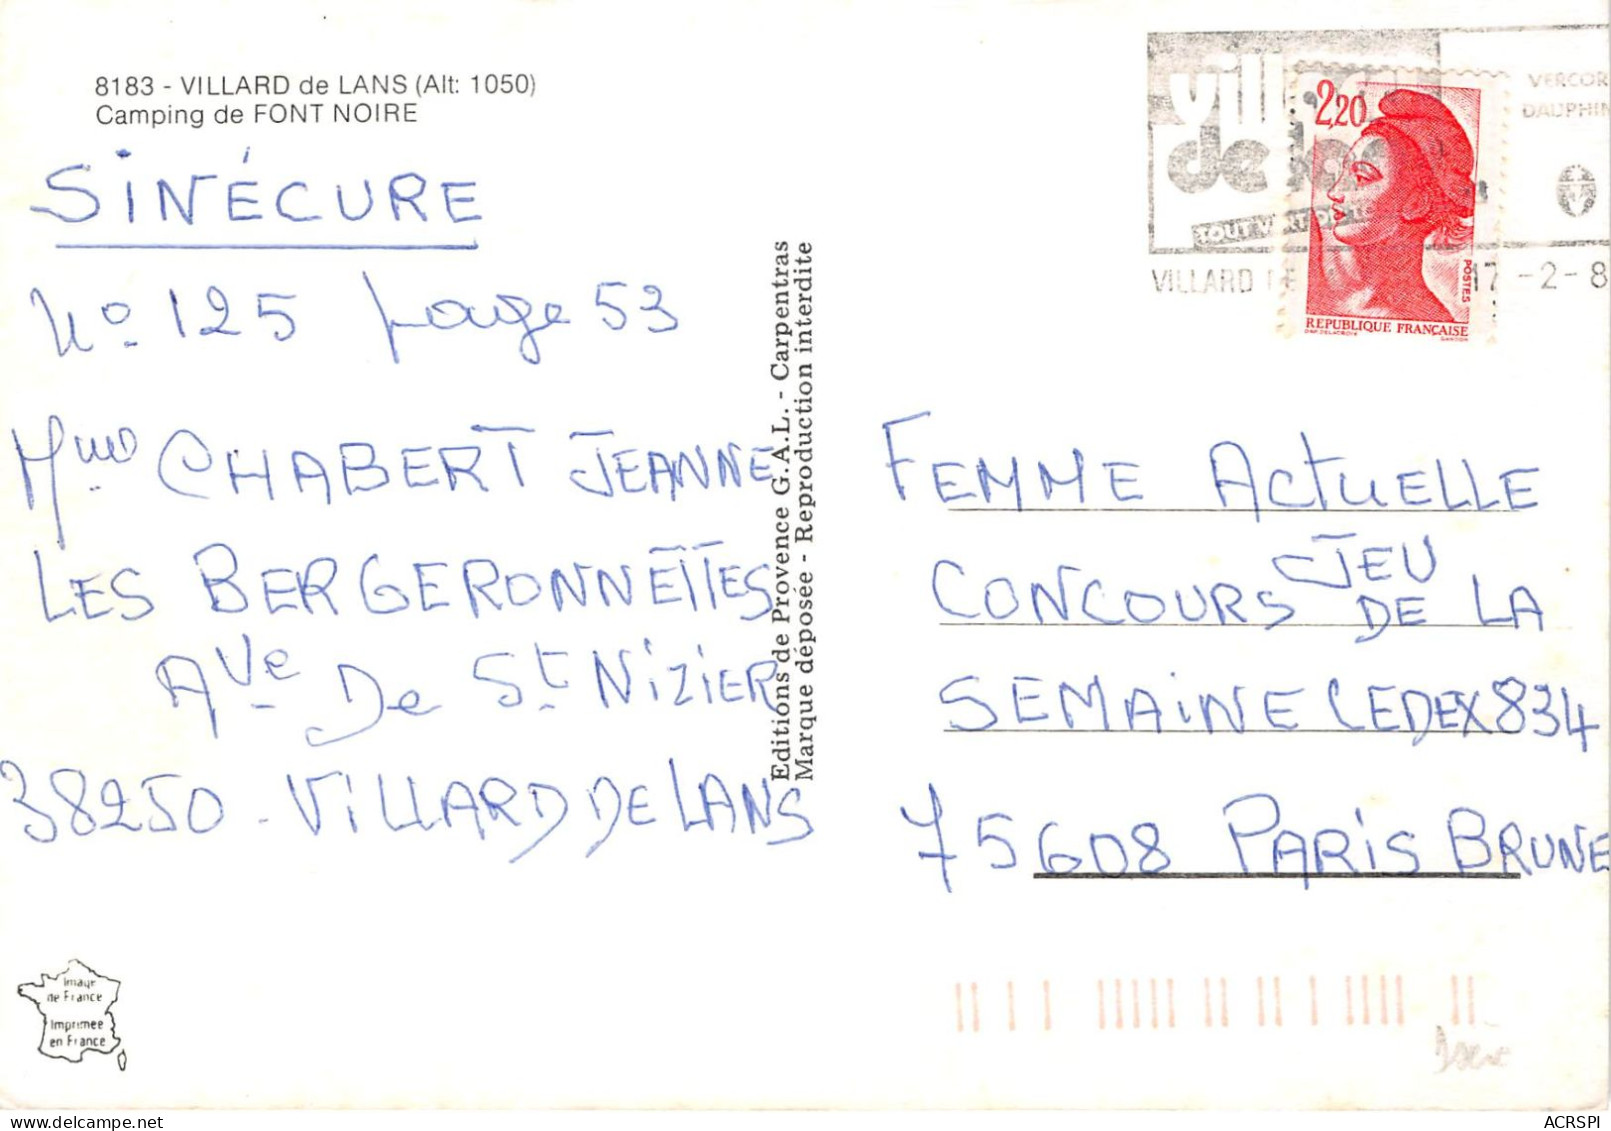 8183 - VILLARD de LANS (Alt: 1050)
Camping de FONT NOIRE
SINÉCURE
No 125 page 53
Mme CHABERT JEANNE
LES BERGERONNETTES
AVe De St NiZiER
38250 - ViLLARD DE LANS
Editions de Provence G.A.L. - Carpentras
Marque déposée - Reproduction interdite
de
TOUT
VERCOR
DAUPHIN
VILLARD DE
17 -2-8
2,20
POSTES
REPUBLIQUE FRANÇAISE
DAP. DELACROIX
GANDON
FEMME ACTUELLE
CONCOURS JEU
DE LA
SEMAiNE CEDEX 834
75608 PARiS BRUNE
Image
de France
Imprimée
en France
ACRSPI